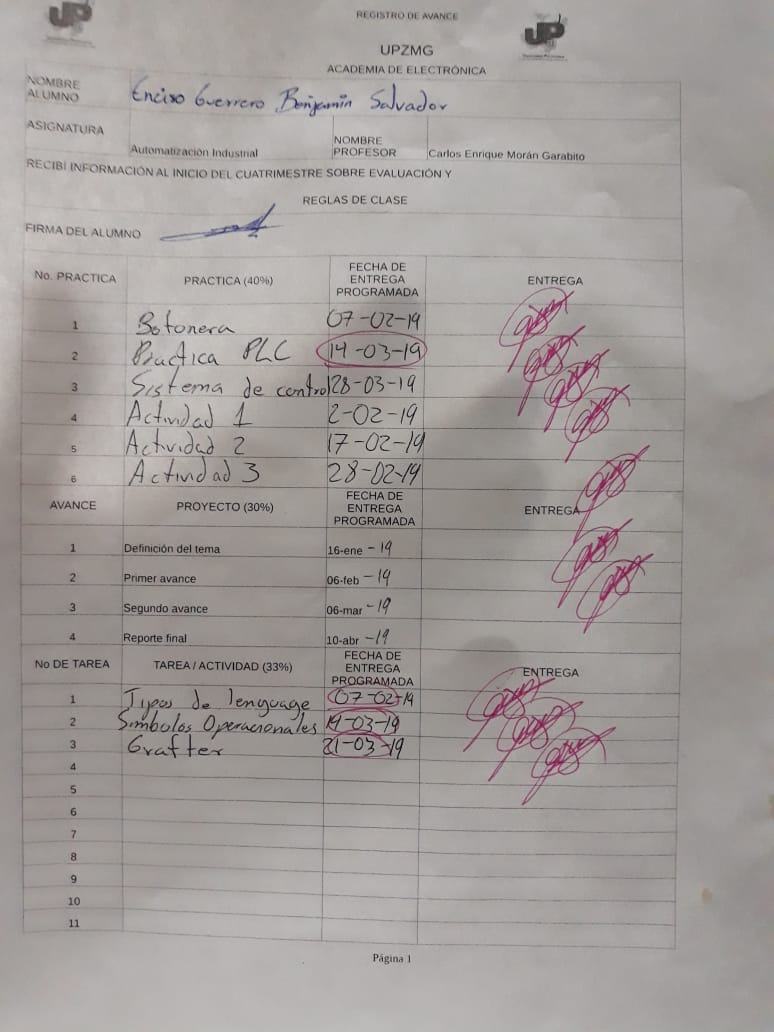 UP
REGISTRO DE AVANCE
UP
UPZMG
ACADEMIA DE ELECTRÓNICA
NOMBRE ALUMNO Enciso Guerrero Benjamin Salvador
ASIGNATURA Automatización Industrial NOMBRE PROFESOR Carlos Enrique Morán Garabito
RECIBÍ INFORMACIÓN AL INICIO DEL CUATRIMESTRE SOBRE EVALUACIÓN Y
REGLAS DE CLASE
FIRMA DEL ALUMNO
No. PRACTICA PRACTICA (40%) FECHA DE ENTREGA PROGRAMADA ENTREGA
1 Botonera 07-02-19
2 Practica PLC 14-03-19
3 Sistema de control 28-03-19
4 Actividad 1 2-02-19
5 Actividad 2 17-02-19
6 Actividad 3 28-02-19
AVANCE PROYECTO (30%) FECHA DE ENTREGA PROGRAMADA ENTREGA
1 Definición del tema 16-ene -19
2 Primer avance 06-feb -19
3 Segundo avance 06-mar -19
4 Reporte final 10-abr -19
No DE TAREA TAREA / ACTIVIDAD (33%) FECHA DE ENTREGA PROGRAMADA ENTREGA
1 Tipos de lenguage 07-02-19
2 Simbolos Operacionales 14-03-19
3 Grafter 21-03-19
4
5
6
7
8
9
10
11
Página 1